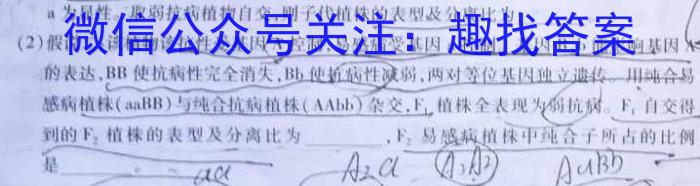 a为显性,取弱抗病植物自交,则子代植株的表型及分离比为
微信公众号关注:趣找答案
(2)假
的表达,BB使抗病性完全消失,Bb使抗病性减弱,两对等位基因独立遗传。用纯合易
感病植株(aaBB)与纯合抗病植株(AAbb)杂交,F₁植株全表现为弱抗病。F₁自交得
到的F₂植株的表型及分离比为________,F₂易感病植株中纯合子所占的比例
是________
aa A₂a A₂A₂ AaBb